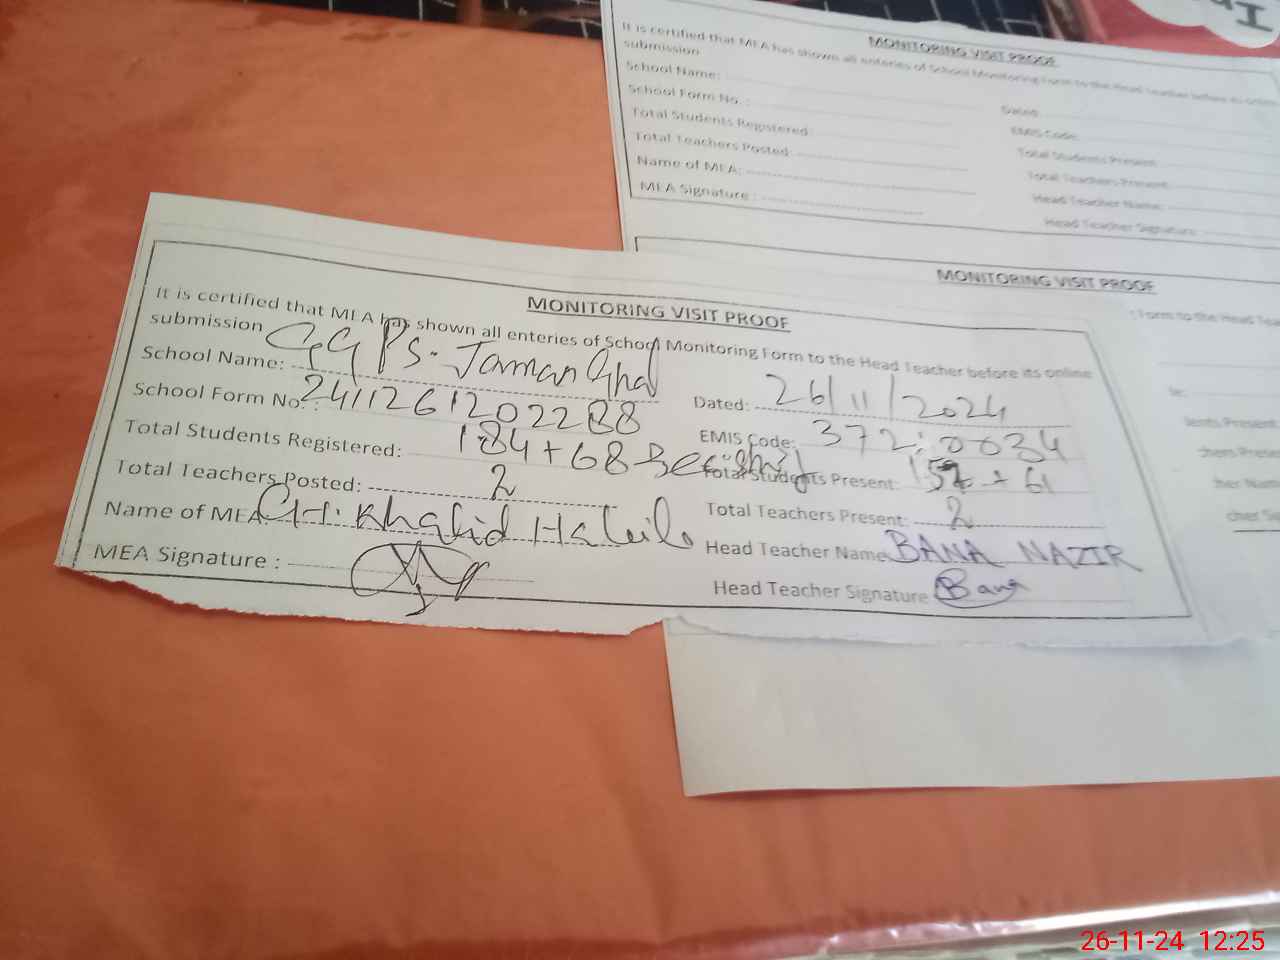 MONITORING VISIT PROOF
It is certified that MEA has shown all enteries of School Monitoring Form to the Head Teacher before its online
submission
School Name:
School Form No. :
Dated:
Total Students Registered:
EMIS Code:
Total Teachers Posted:
Total Students Present:
Name of MEA:
Total Teachers Present:
MEA Signature :
Head Teacher Name:
Head Teacher Signature
MONITORING VISIT PROOF
Form to the Head Tea
MONITORING VISIT PROOF
It is certified that MEA has shown all enteries of School Monitoring Form to the Head Teacher before its online
submission
School Name: GGPS. Jaman Ghal
Dated: 26/11/2024
School Form No. : 2411261202288
EMIS Code: 372 0034
Total Students Registered: 184+68
Total Students Present: + 61
Total Teachers Posted: 2
Total Teachers Present: 2
Name of MEA: CH. Khalid
Head Teacher Name BANA NAZIR
MEA Signature :
Head Teacher Signature Bana
26-11-24 12:25